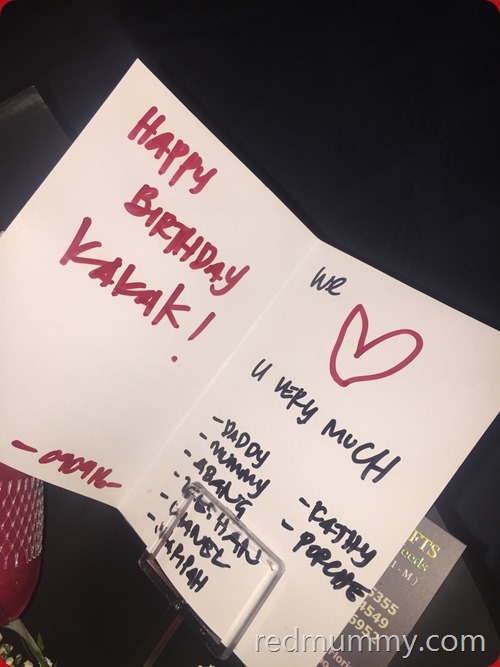 HAPPY
BIRTHDAY
KAKAK!
We
U VERY MUCH
- DADDY
- MUMMY
- ABANG
- KATHY
- PORCHE
FTS
eeds
- M )
5355
4549
redmummy.com